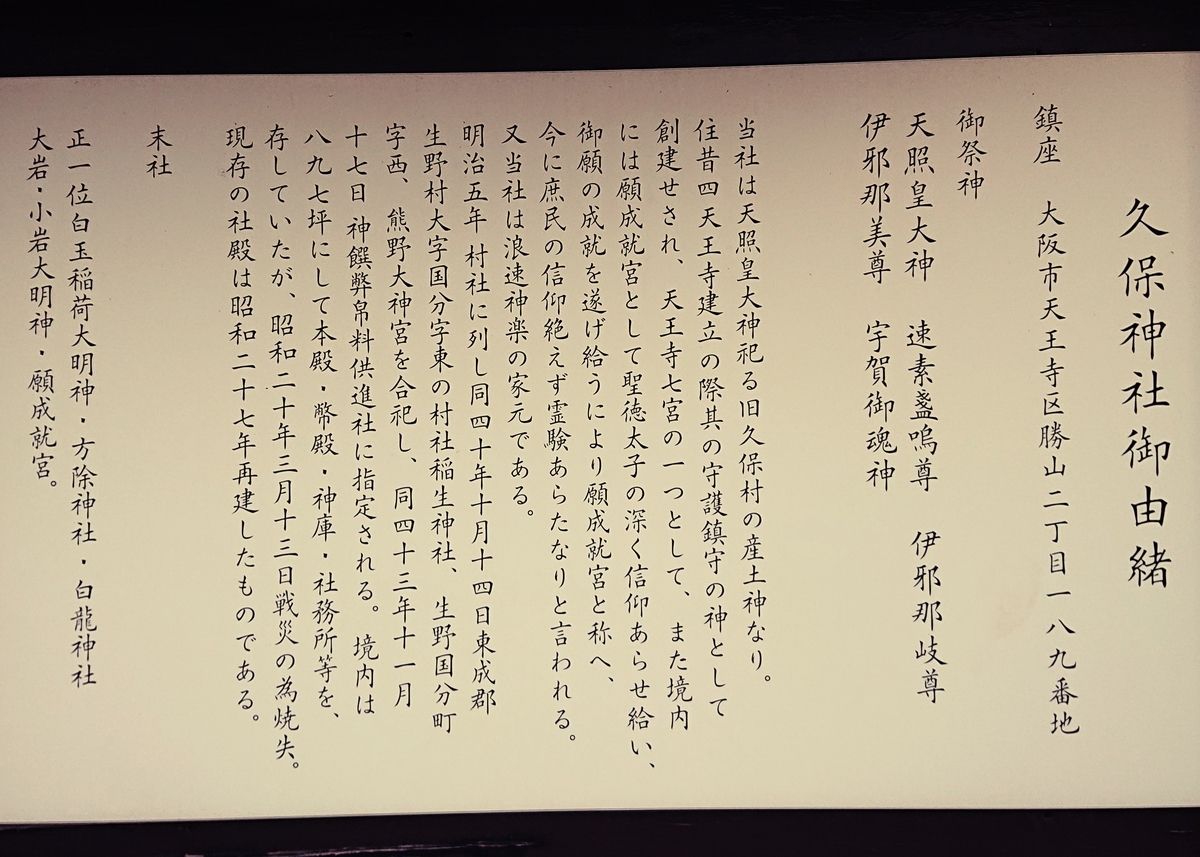 久保神社御由緒
鎮座　大阪市天王寺区勝山二丁目一八九番地
御祭神
天照皇大神　速素盞嗚尊　伊邪那岐尊
伊邪那美尊　宇賀御魂神
当社は天照皇大神祀る旧久保村の産土神なり。
往昔四天王寺建立の際其の守護鎮守の神として
創建せされ、天王寺七宮の一つとして、また境内
には願成就宮として聖徳太子の深く信仰あらせ給い、
御願の成就を遂げ給うにより願成就宮と称へ、
今に庶民の信仰絶えず霊験あらたなりと言われる。
又当社は浪速神楽の家元である。
明治五年 村社に列し同四十年十月十四日東成郡
生野村大字国分字東の村社稲生神社、生野国分町
字西、熊野大神宮を合祀し、同四十三年十一月
十七日 神饌弊帛料供進社に指定される。境内は
八九七坪にして本殿・幣殿・神庫・社務所等を、
存していたが、昭和二十年三月十三日戦災の為焼失。
現存の社殿は昭和二十七年再建したものである。
末社
正一位白玉稲荷大明神・方除神社・白龍神社
大岩・小岩大明神・願成就宮。